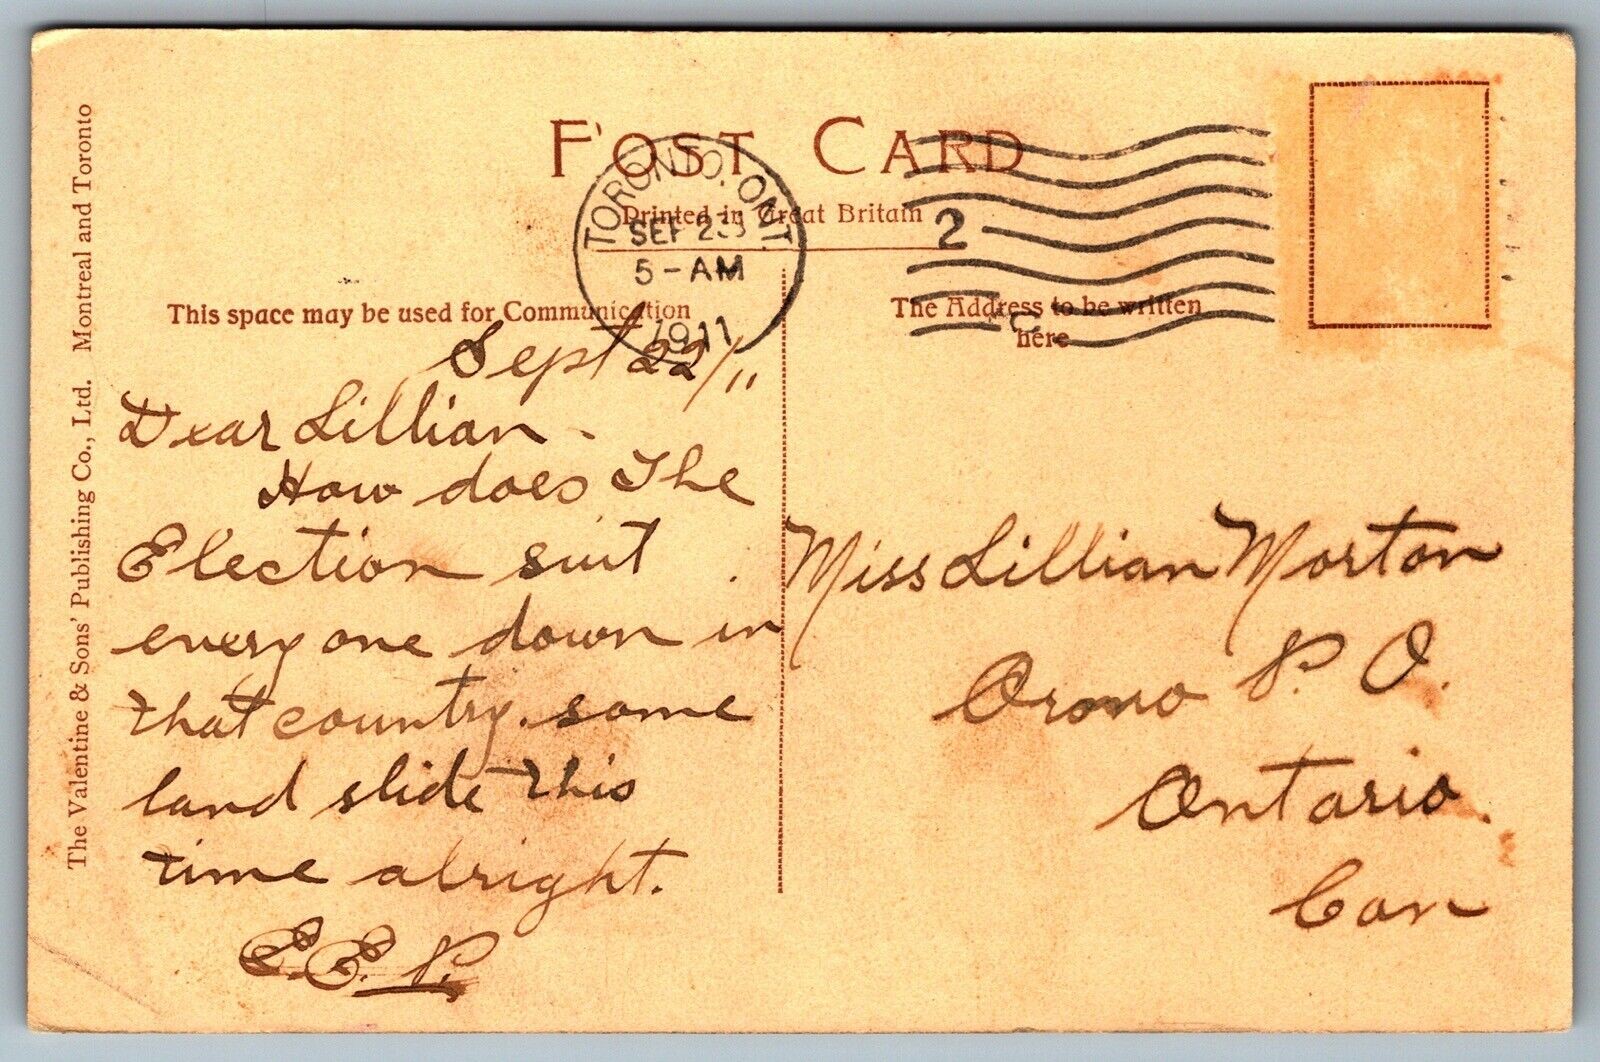 POST CARD
TORONTO, ONT.
SEP 23
5-AM
1911
2
Printed in Great Britain
This space may be used for Communication
The Address to be written
here
The Valentine & Sons' Publishing Co., Ltd. Montreal and Toronto
Sept 22/11
Dear Lillian -
How does The
Election suit
every one down in
that country. some
land slide this
time alright.
E.E.P.
Miss Lillian Morton
Orono P. O.
Ontario.
Can